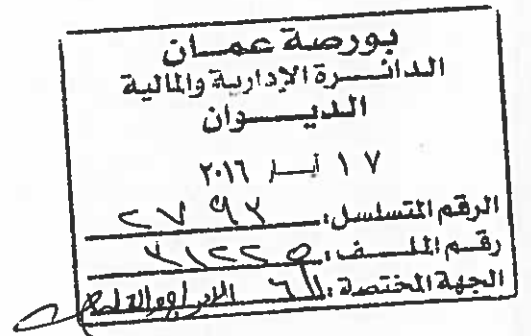 بورصة عمان
الدائرة الإدارية والمالية
الديوان
١٧ أيار ٢٠١٦
الرقم المتسلسل:
رقم الملف: ٣١٢٢٥
الجهة المختصة: